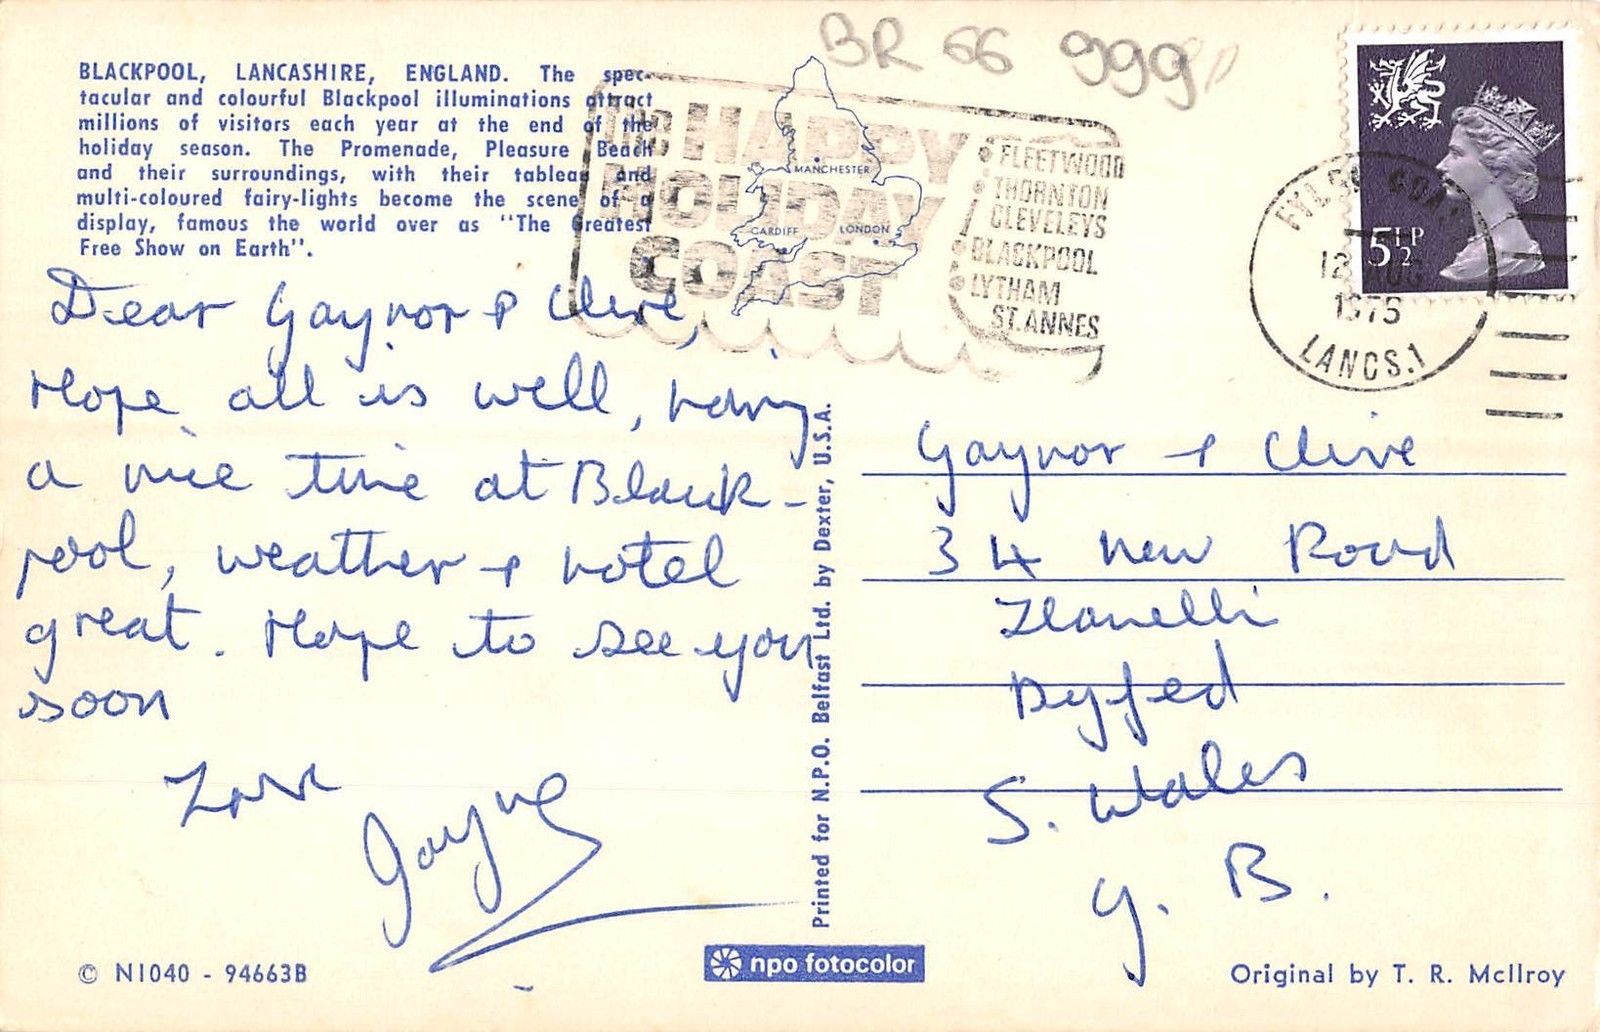 BR 66 999
BLACKPOOL, LANCASHIRE, ENGLAND. The spec-
tacular and colourful Blackpool illuminations attract
millions of visitors each year at the end of the
holiday season. The Promenade, Pleasure Beach
and their surroundings, with their tableau and
multi-coloured fairy-lights become the scene of a
display, famous the world over as "The Greatest
Free Show on Earth".
The HAPPY
HOLIDAY
COAST
MANCHESTER
CARDIFF
LONDON
FLEETWOOD
THORNTON
CLEVELEYS
BLACKPOOL
LYTHAM
ST. ANNES
5½P
FYLDE COAST
12 AUG
1975
LANCS.1
Dear Gaynor & Clive,
Hope all is well, having
a nice time at Black-
pool, weather & hotel
great. Hope to see you
soon
Love
Gayne
Gaynor & Clive
34 New Road
Llanelli
Dyfed
S. Wales
G. B.
Printed for N.P.O. Belfast Ltd. by Dexter, U.S.A.
© N1040 - 94663B
npo fotocolor
Original by T. R. McIlroy